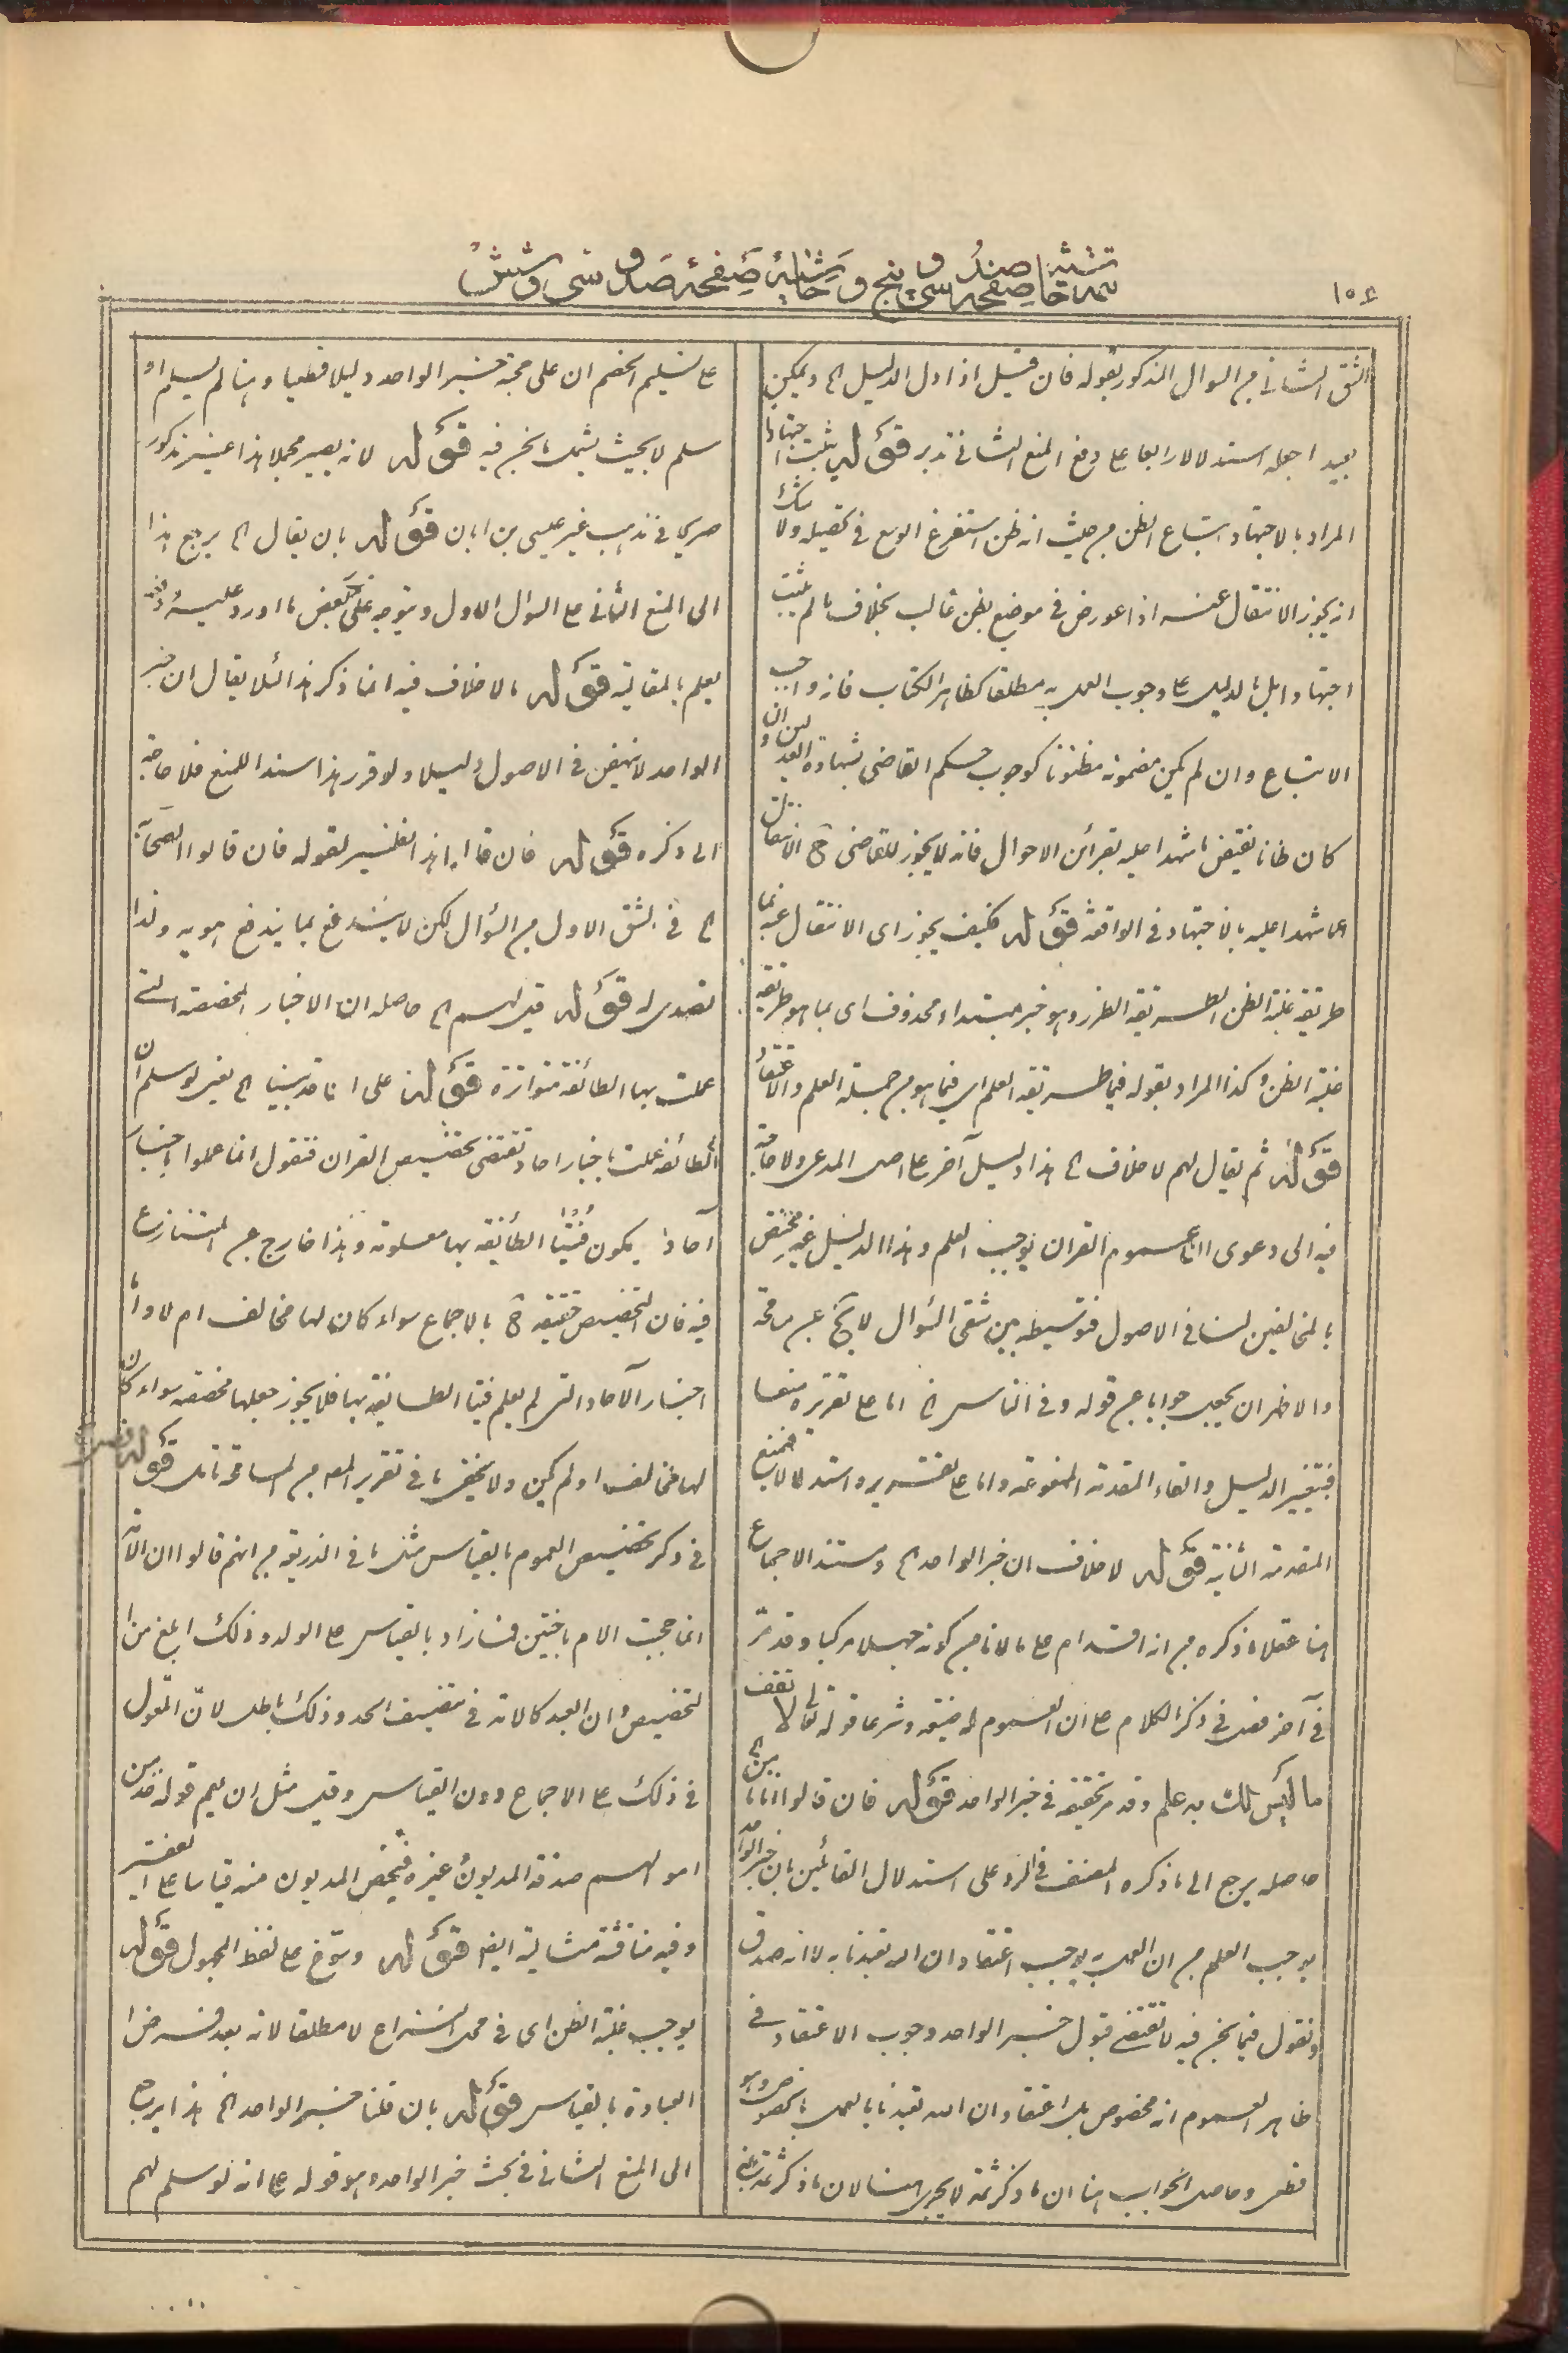 ١٥٤
تتمه حاشيه صفحه صد و سى و پنج و حاشيۀ صفحۀ صد و سى و شش
الشق الثانى من السوال المذكور بقوله فان قيل اذا دل الدليل الخ ويمكن
بعيد اجعله استدلالا رابعا على دفع المنع الثانى تدبر قوله يثبت اجتهادا
المراد بالاجتهاد اتباع الظن من حيث انه ظن استفرغ الوسع فى تحصيله ولا شك
انه يجوز الانتقال عنه اذا عورض فى موضع بظن غالب بخلاف ما لم يثبت
اجتهادا بل بالدليل على وجوب العمل به مطلقا كظاهر الكتاب فانه واجب
الاتباع وان لم يكن مضمونه مظنونا كوجوب حكم القاضى بشهادة العدلين وان
كان ظانا بنقيض ما شهدا عليه بقرائن الاحوال فانه لا يجوز للقاضى ح الانتقال
عما شهدا عليه بالاجتهاد فى الواقعة قوله فكيف يجوز اى الانتقال عنه بما
طريقه غلبة الظن الطريقة الظن وهو خبر مبتداء محذوف اى بما هو طريقه
غلبة الظن وكذا المراد بقوله فيما طريقه العلم اى فيما هو من جملة العلم والاعتقاد
قوله ثم يقال لهم لا خلاف الخ هذا دليل آخر على اصل المدعى ولا حاجة
فيه الى دعوى ان عموم القران يوجب العلم وهذا الدليل غير مختص
بالمخالفين لنا فى الاصول فتوسيطه بين شقى السؤال لا يخ عن سامحة
والاظهر ان يجيب جوابا عن قوله وفى الناس الخ اما على تقريره منعا
فبتغيير الدليل والقاء المقدمة الممنوعة واما على تقريره استدلالا فبمنع
المقدمة الثانية قوله لا خلاف ان خبر الواحد الخ ومستند الاجماع
هنا عقلا ما ذكره من انه اقدام على ما لا نامن كونه جهلا مركبا وقد مرّ
فى آخر فصل فى ذكر الكلام على ان العموم له صيغة وشرعا قوله تعالى لا تقف
ما ليس لك به علم وقد مر تحقيقه فى خبر الواحد قوله فان قالوا انا ما الخ
حاصله يرجع الى ما ذكره المصنف فى الرد على استدلال القائلين بان خبر الواحد
يوجب العلم من ان العمل به يوجب اعتقاد ان الله تعبدنا به لا انه صدق
ونقول فيما نحن فيه لا نقتضى قبول خبر الواحد وجوب الاعتقاد فى
ظاهر العموم انه مخصوص بل اعتقاد ان الله تعبدنا بالعمل بالخصوص وهو
قطعى وحاصل الجواب هنا ان ما ذكر ثمة لا يجرى هنا لان ما ذكر ثمة مبنى
على تسليم الخصم ان على حجية خبر الواحد دليلا قطعيا وهنا لم يسلم او
سلم لا بحيث يشمل ما نحن فيه قوله لانه يصير مجملا هذا غير مذكور
صريحا فى مذهب غير عيسى بن ابان قوله بان يقال الخ يرجع هذا
الى المنع الثانى على السوال الاول ويتوجه على بعض ما اورد عليه
يعلم بالمقايسة قوله ما لا خلاف فيه انما ذكر هذا لئلا يقال ان خبر
الواحد لا ينهض فى الاصول دليلا ولو قرر هذا سندا للمنع فلا حاجة
الى ذكره قوله فان قالوا هذا نظير لقوله فان قالوا الصحابة
الخ فى الشق الاول من السؤال لكن لا يندفع بما يندفع هو به ولذا
تصدى له قوله قيل لهم الخ حاصله ان الاخبار المخصصة التى
عملت بها الطائفة متواترة قوله على انا قد بينا الخ يعنى لو سلم ان
الطائفة عملت باخبار احاد تقتضى تخصيص القران فنقول انما عملوا باخبار
آحاد يكون فتيا الطائفة بها معلومة وهذا خارج عن المتنازع
فيه فان التخصيص حقيقة ح بالاجماع سواء كان لها مخالف ام لا واما
اخبار الآحاد التى لم يعلم فتيا الطائفة بها فلا يجوز جعلها مخصصة سواء كان
لها مخالف او لم يكن ولا يخفى ما فى تقرير المص من المسامحة تامل قوله فصل
فى ذكر تخصيص العموم بالقياس مثل ما فى الذريعة من انهم قالوا ان الآية
انما حجبت الام باختين فما زاد بالقياس على الولد وذلك ابلغ من
التخصيص وان العبد كالامة فى تنصيف الحد وذلك باطل لان المعول
فى ذلك على الاجماع دون القياس وقيل مثل ان يعم قوله خذ من
اموالهم صدقة المديون وغيره فيخص المديون منه قياسا على الفقير
وفيه مناقشة مثالية ايضا قوله وتوخ على لفظ المجهول قوله
يوجب غلبة الظن اى فى محل النزاع لا مطلقا لانه بعد فرض
العبادة بالقياس قوله بان قلنا خبر الواحد الخ هذا يرجع
الى المنع الثانى فى بحث خبر الواحد وهو قوله على انه لو سلم لهم